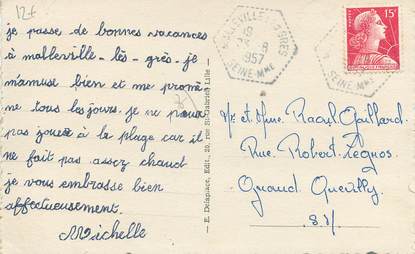 12f
je passe de bonnes vacances
à malleville-lès-grès. je
m'amuse bien et me promè
ne tous les jours. je ne peux
pas jouer à la plage car il
ne fait pas assez chaud
je vous embrasse bien
affectueusement.
Michelle
E. Delapiace, Edit., 20, rue St-Gabriel, Lille
MALLEVILLE LES GRES
19
8
1957
SEINE-MME
SEINE-MME
15f
Mr et Mme Raoul Gaillard
Rue Robert
Grand Quevilly
S.M